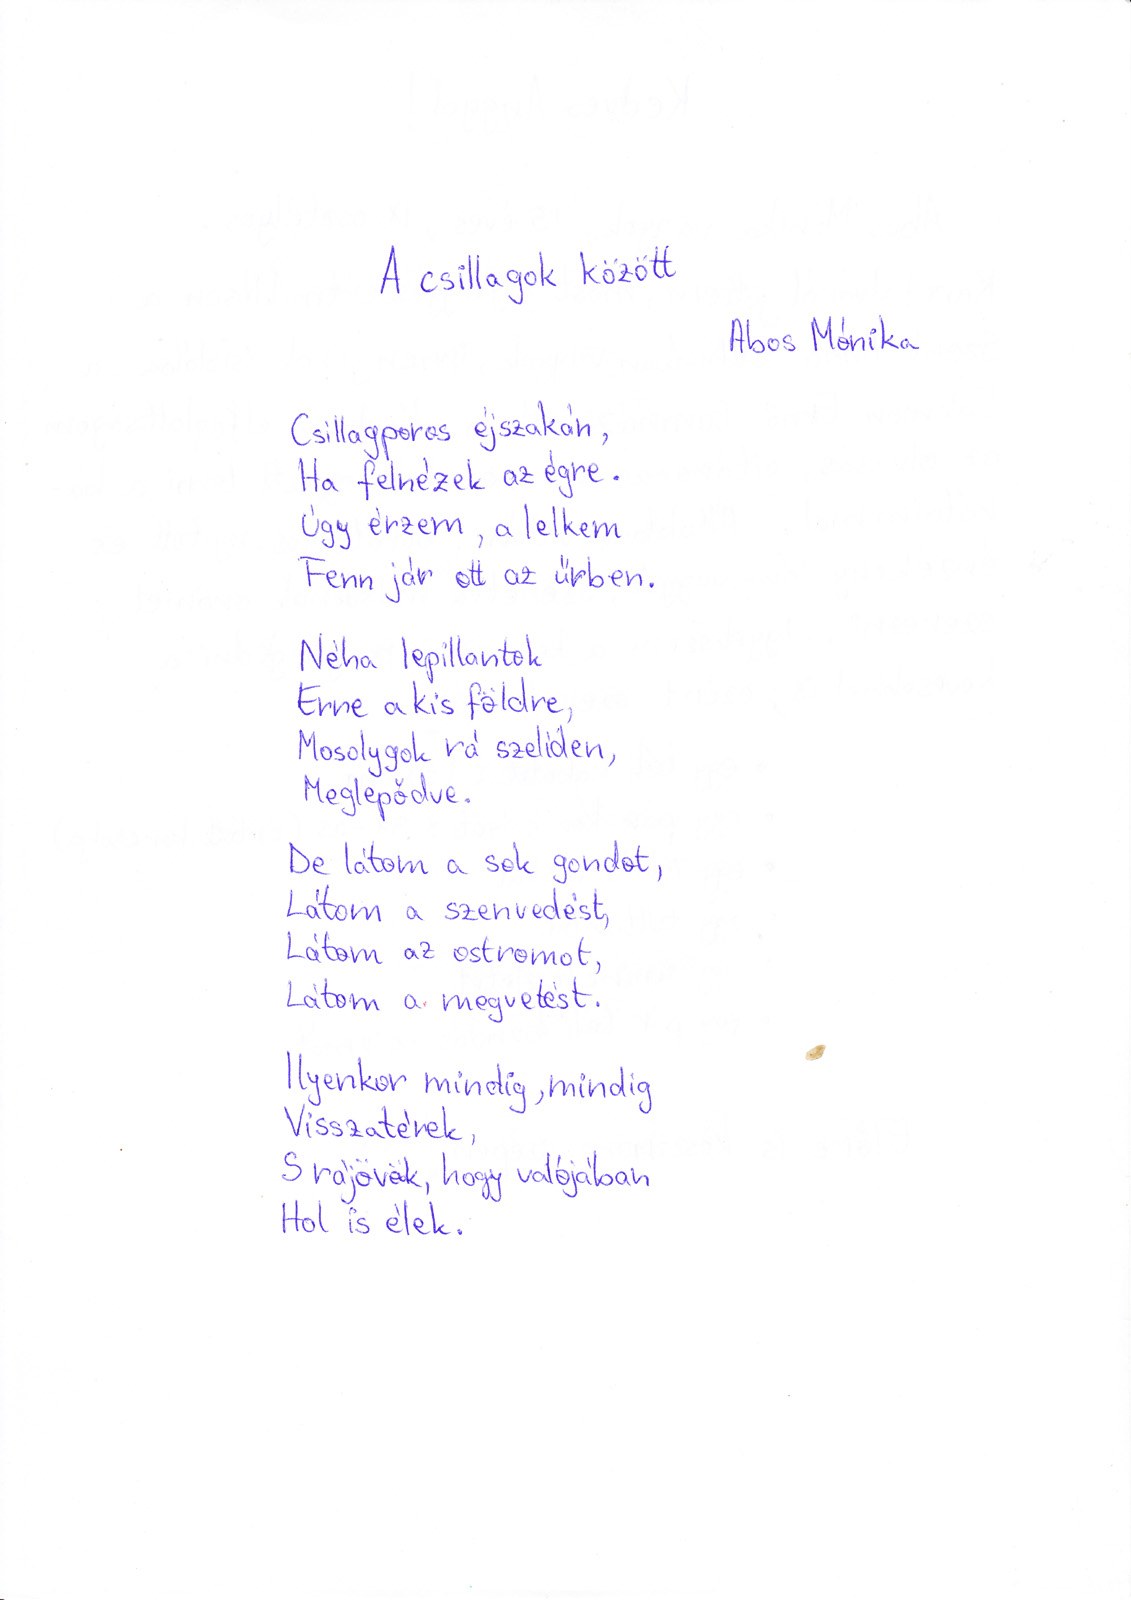 A csillagok között
Abos Mónika
Csillagporos éjszakán,
Ha felnézek az égre.
Úgy érzem, a lelkem
Fenn jár ott az űrben.
Néha lepillantok
Erre a kis földre,
Mosolygok rá szelíden,
Meglepődve.
De látom a sok gondot,
Látom a szenvedést,
Látom az ostromot,
Látom a megvetést.
Ilyenkor mindig, mindig
Visszatérek,
S rájövök, hogy valójában
Hol is élek.